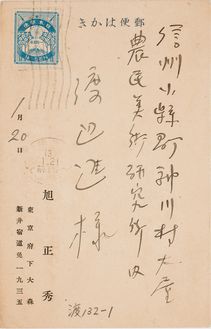 郵便はかき
信州小縣郡神川村大屋
農民美術研究所内
渡辺進様
1月20日
旭正秀
東京府下大森
新井宿道免一九三五
渡132-1